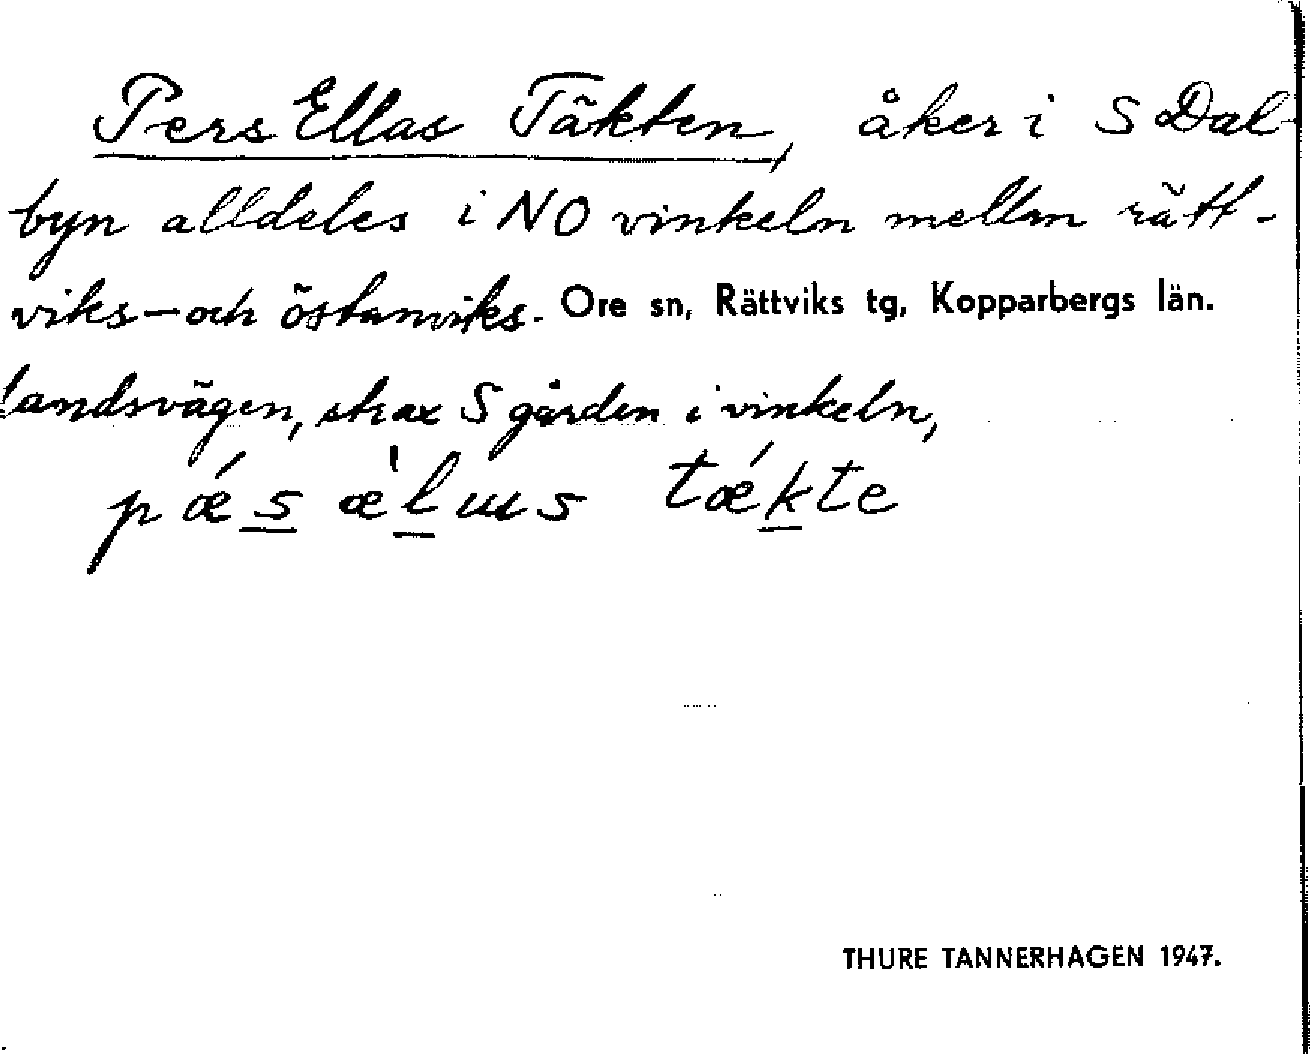 Pers Ellas Täkten, åker i S Dal-
byn alldeles i NO vinkeln mellan rätt-
viks- och östanviks- Ore sn, Rättviks tg, Kopparbergs län.
landsvägen, strax S gården i vinkeln,
pǽs æ̀lɯs tǽkte
THURE TANNERHAGEN 1947.